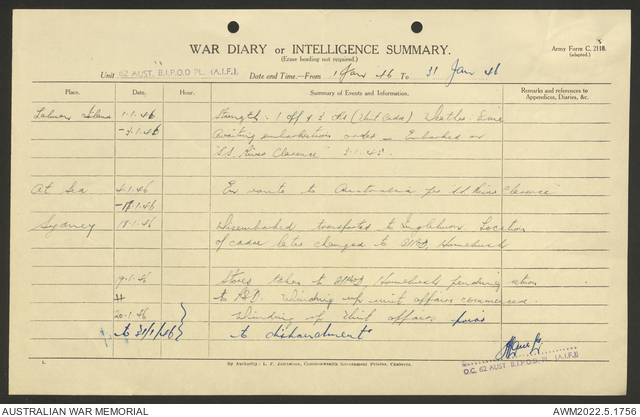 WAR DIARY or INTELLIGENCE SUMMARY.
(Erase heading not required.)
Army Form C. 2118.
(adapted.)
Unit 62 AUST. B.I.P.O.D. PL. (A.I.F.) Date and Time.—From 1 Jan 46 To 31 Jan 46
Place. Date. Hour. Summary of Events and Information. Remarks and references to Appendices, Diaries, &c.
1.1.46 Strength. 1 off & 3 (Unit Cadre) Weather. Fine
-3.1.46 Awaiting embarkation orders - Embarked on
"S.S. River Clarence" 3.1.
At Sea 4.1.46 En route to Australia per S.S. River Clarence
-17.1.46
Sydney 18.1.46 Disembarked transported to Ingleburn. Location
of cadre later changed to Homebush
9.1.46 Stores taken to Homebush pending return
to Winding up unit affairs commenced.
20.1.46 Winding up Unit affairs prior
to 31/1/46 to disbandment
O.C. 62 AUST. B.I.P.O.D. PL. (A.I.F.)
By Authority: L. F. Johnston, Commonwealth Government Printer, Canberra.
AUSTRALIAN WAR MEMORIAL
AWM2022.5.1756